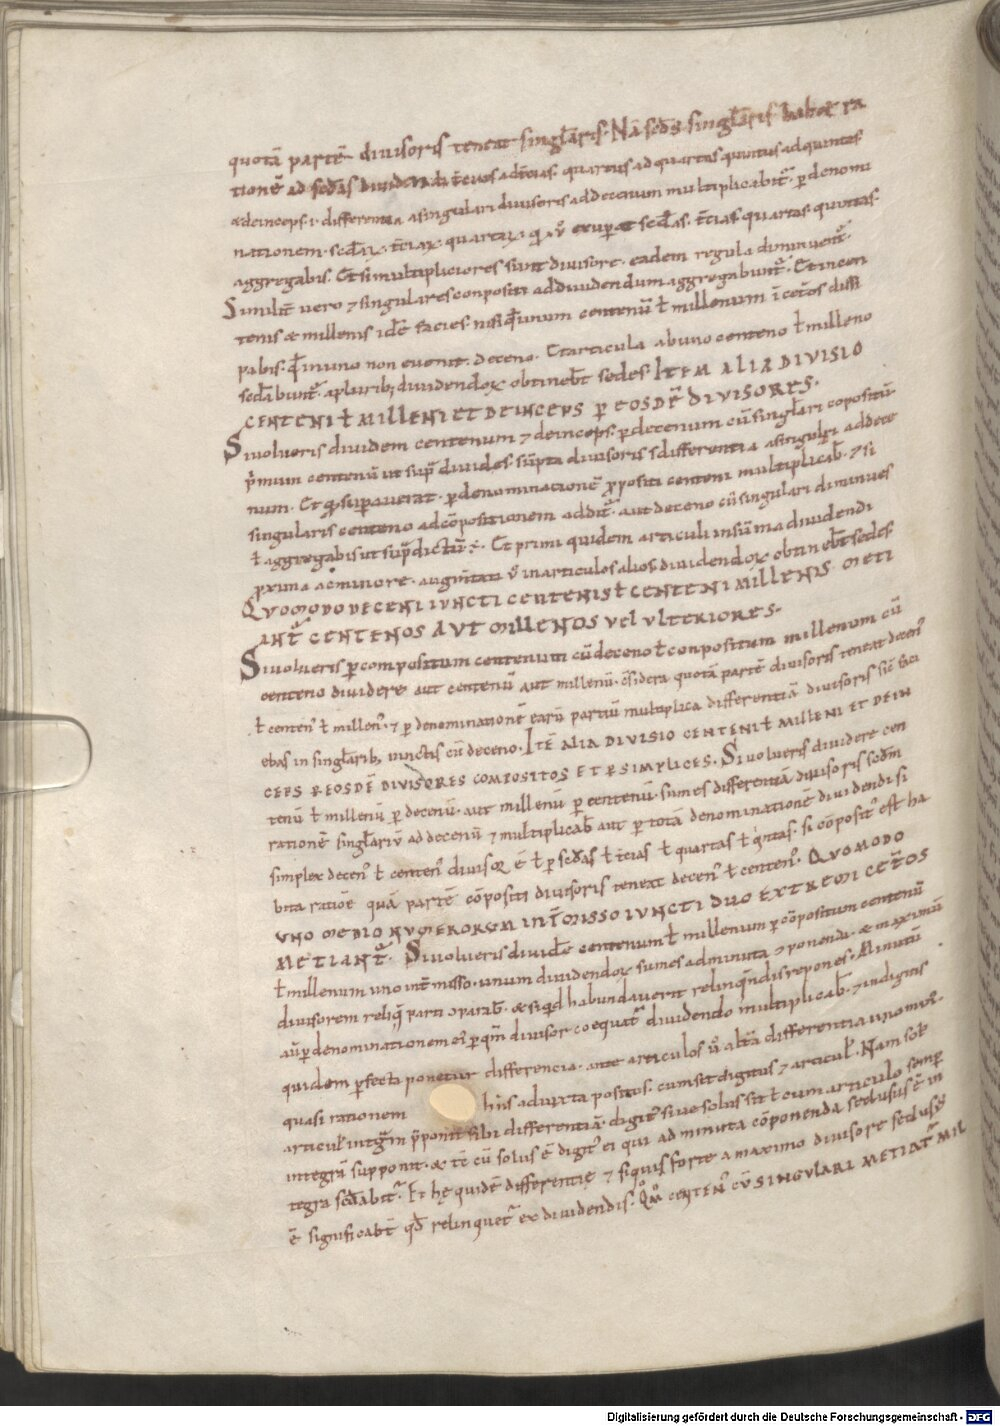 quotā partē diuisoris teneat singłaris. Nā scďs singłaris habet ra
tionē ad scďas diuidendi t̄cius ad t̄cias. quartus ad quartas quintus ad quintas
& deinceps .i. differentia a singulari diuisoris ad decenum multiplicabit̄. p̄ denomi
nationem scďaꝝ t̄ciaꝝ quartaꝝ. qi ů exuperat scďas. t̄cias quartas. quintas.
aggregabis. Et si multipliciores sunt diuisore. eadem regula diminuent̄.
Similit̄ uero & singulares conpositi ad diuidendum aggregabunt̄. Et in cen
tenis & millenis idē facies. nisi quod unum centenū ł millenum i cet̄os dissi
pabis. qđ in uno non euenit. deceno. Et articula ab uno centeno ł milleno
secłabunt̄. a plurib; diuidendoꝝ obtineb̄t sedes. ITEM ALIA DIVISIO
CENTENI ł MILLENI ET DEINCEPS P EOSDĒ DIVISORES.
Si uolueris diuidem centenum & deinceps. p decenum cū singłari copositū
p̄mum centenū ut sup̄ diuides. sūpta diuisoris differentia a singułri ad dece
num. Et qđ sup̄auerat. p denominationē p̄positi centeni multiplicab̄. & si
singularis centeno ad cōpositionem addit̄. aut deceno cū singulari diminues
ł aggregabis ut sup̄ dictū ÷. Et primi quidem articuli in sūma diuidendi
proxima a c minore. augm̄tati ů in articulos alios diuidendoꝝ obtineb̄t sedes
QVOMODO DECENI IVNCTI CENTENIS ł CENTENI MILLENIS METI
ANT̄ CENTENOS AVT MILLENOS VEL VLTERIORES.
Si uolueris p compositum centenum cū deceno ł conpositum millenum cū
centeno diuidere aut centenū aut millenū. c̄sidera quotā partē diuisoris teneat decen̓
ł centen̓ ł millen̓. & p denominationē earū partiū multiplica differentiā diuisoris sic̄ faci
ebas in singłarib; iunctis cū deceno. ITĒ ALIA DIVISIO CENTENI ł MILLENI ET DEIN
CEPS P EOSDĒ DIVISORES COMPOSITOS ET P SIMPLICES. Si uolueris diuidere cen
tenū ł millenū p decenū. aut millenū p centenū. sumes differentiā diuisoris scďm
rationē singłariū ad decenū & multiplicab̄ aut p totā denominationē diuidendi si
simplex decen̓ ł centen̓ diuisor ē ł p scďas ł t̄cias ł quartas ł q̇ntas. si cōposit̓ est ha
bita ratiōe quā partē cōpositi diuisoris teneat decen̓ ł centen̓. QVOMODO
VNO MEDIO NVMERORVM INT̄MISSO IVNCTI DVO EXTREMI CET̄OS
METIANT̄. Si uolueris diuidē centenum ł millenum p cōpositum centenū
ł millenum uno int̄misso. unum diuidendoꝝ sumes ad minuta cponenda. & maximū
diuisorem reliq̄ parti cparab̄. & siqđ habundauerit relinq̄ndis repones. Minutū
aū p denominationem ei̓ p qm̄ diuisor coequat̄ diuidendo multiplicab̄. & in digitis
quidem p̄fecta ponetur differencia. ante articulos ů altā differentia uno min̓.
quasi rationem his adiuxta positos. cum sit digitus & articul̓. Nam sol̓
articul̓ integrā p̄ponit sibi differentiā. digit̓ siue solus sit ł cum articulo semp̄
integrā supponit. & tē cū solus ē digit̓ ei qui ad minuta cōponenda seclusus ē in
tegra secłabit̄. Et hę quidē differentię & si quis forte a maximo diuisore seclusus
ē significab̄t qđ relinquet̄ ex diuidendis. QM̊ CENTEN̓ CV̄ SINGVLARI METIAT̄ MIL
Digitalisierung gefördert durch die Deutsche Forschungsgemeinschaft - DFG